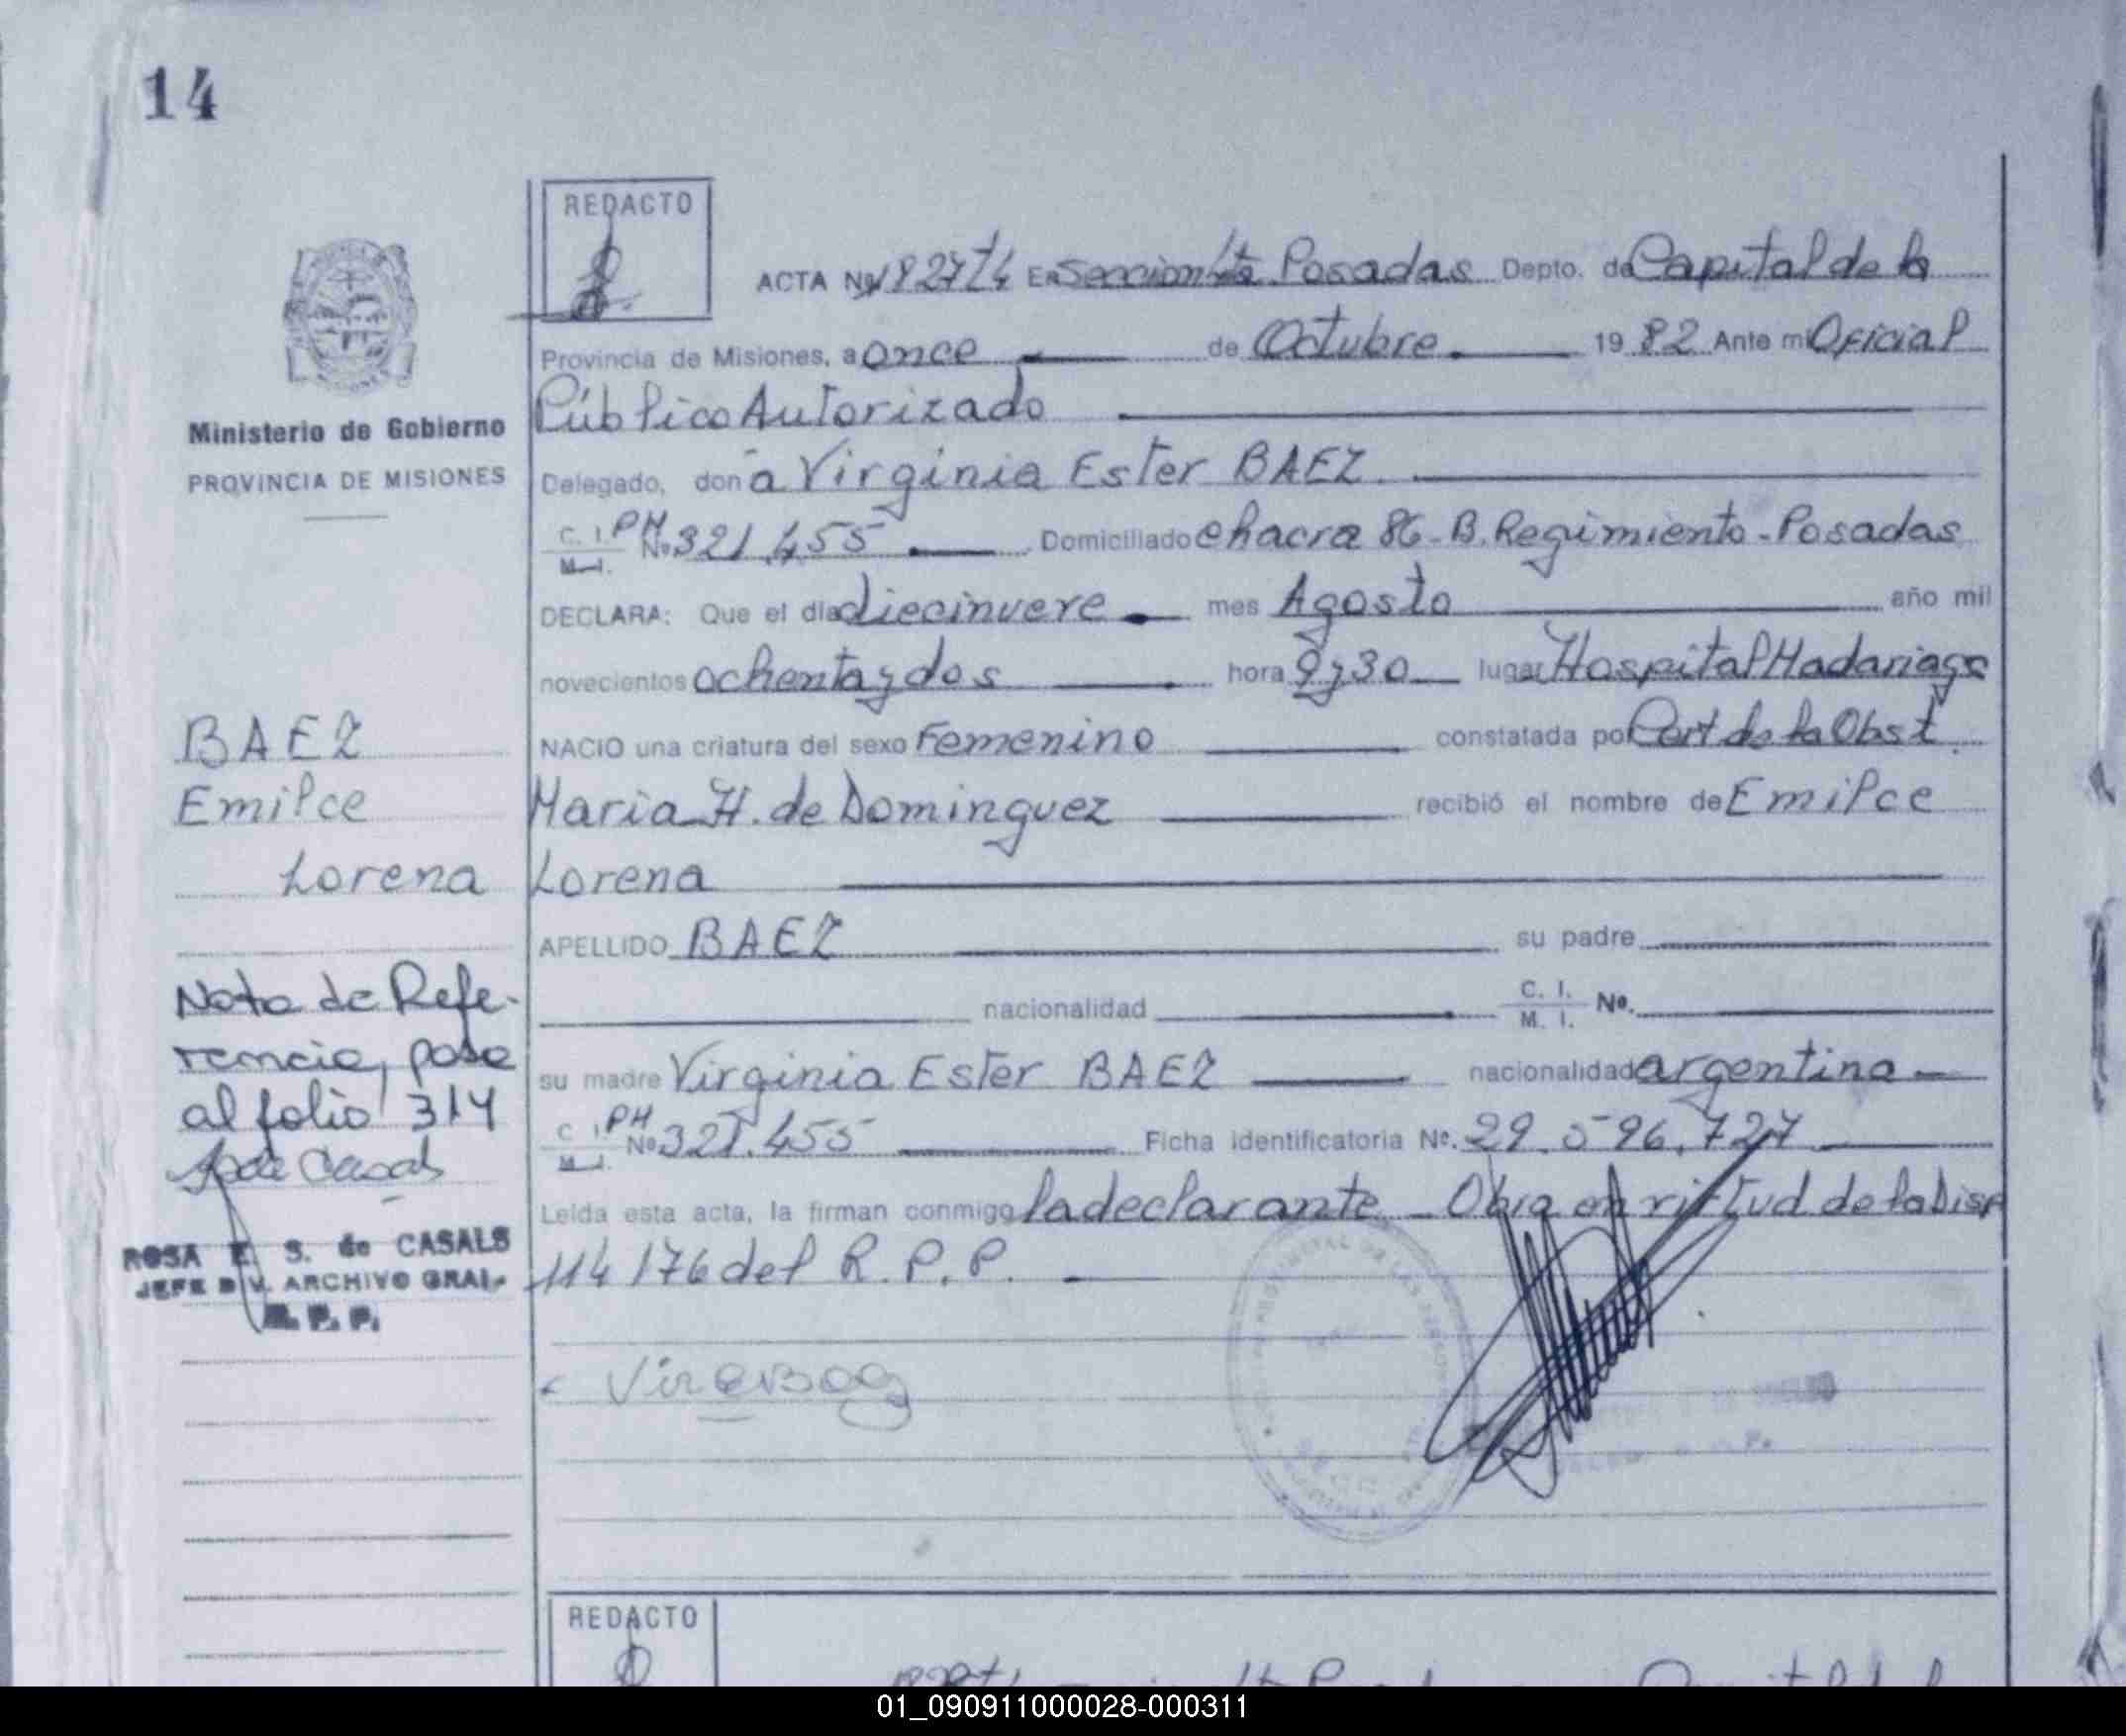 14
REDACTO
ACTA Nº 1827 t4 En Sección 4ta Posadas Depto. de Capital de la
Provincia de Misiones, a once de Octubre 1982 Ante mi Oficial
Público Autorizado
Ministerio de Gobierno
PROVINCIA DE MISIONES
Delegado, doña Virginia Ester BAEZ
C. I. M. I. PH Nº 321.455 Domiciliado chacra 86 - B. Regimiento - Posadas
DECLARA: Que el día diecinueve mes Agosto año mil
novecientos ochenta y dos hora 9 y 30 lugar Hospital Madariaga
BAEZ
NACIO una criatura del sexo Femenino constatada por Cert de la Obst.
Emilce
Maria H. de Dominguez recibió el nombre de Emilce
Lorena
Lorena
APELLIDO BAEZ su padre
nacionalidad C. I. M. I. Nº.
su madre Virginia Ester BAEZ nacionalidad argentina
C. I. M. I. PH Nº 321.455 Ficha identificatoria Nº. 29.596.727
Leída esta acta, la firman conmigo la declarante - Obra en virtud de la Disp
114/76 del R.P.P.
Nota de Refe-
rencia, pasa
al folio 314
ROSA E. S. de CASALS
JEFE DIV. ARCHIVO GRAL.
R. P. P.
REDACTO
01_090911000028-000311